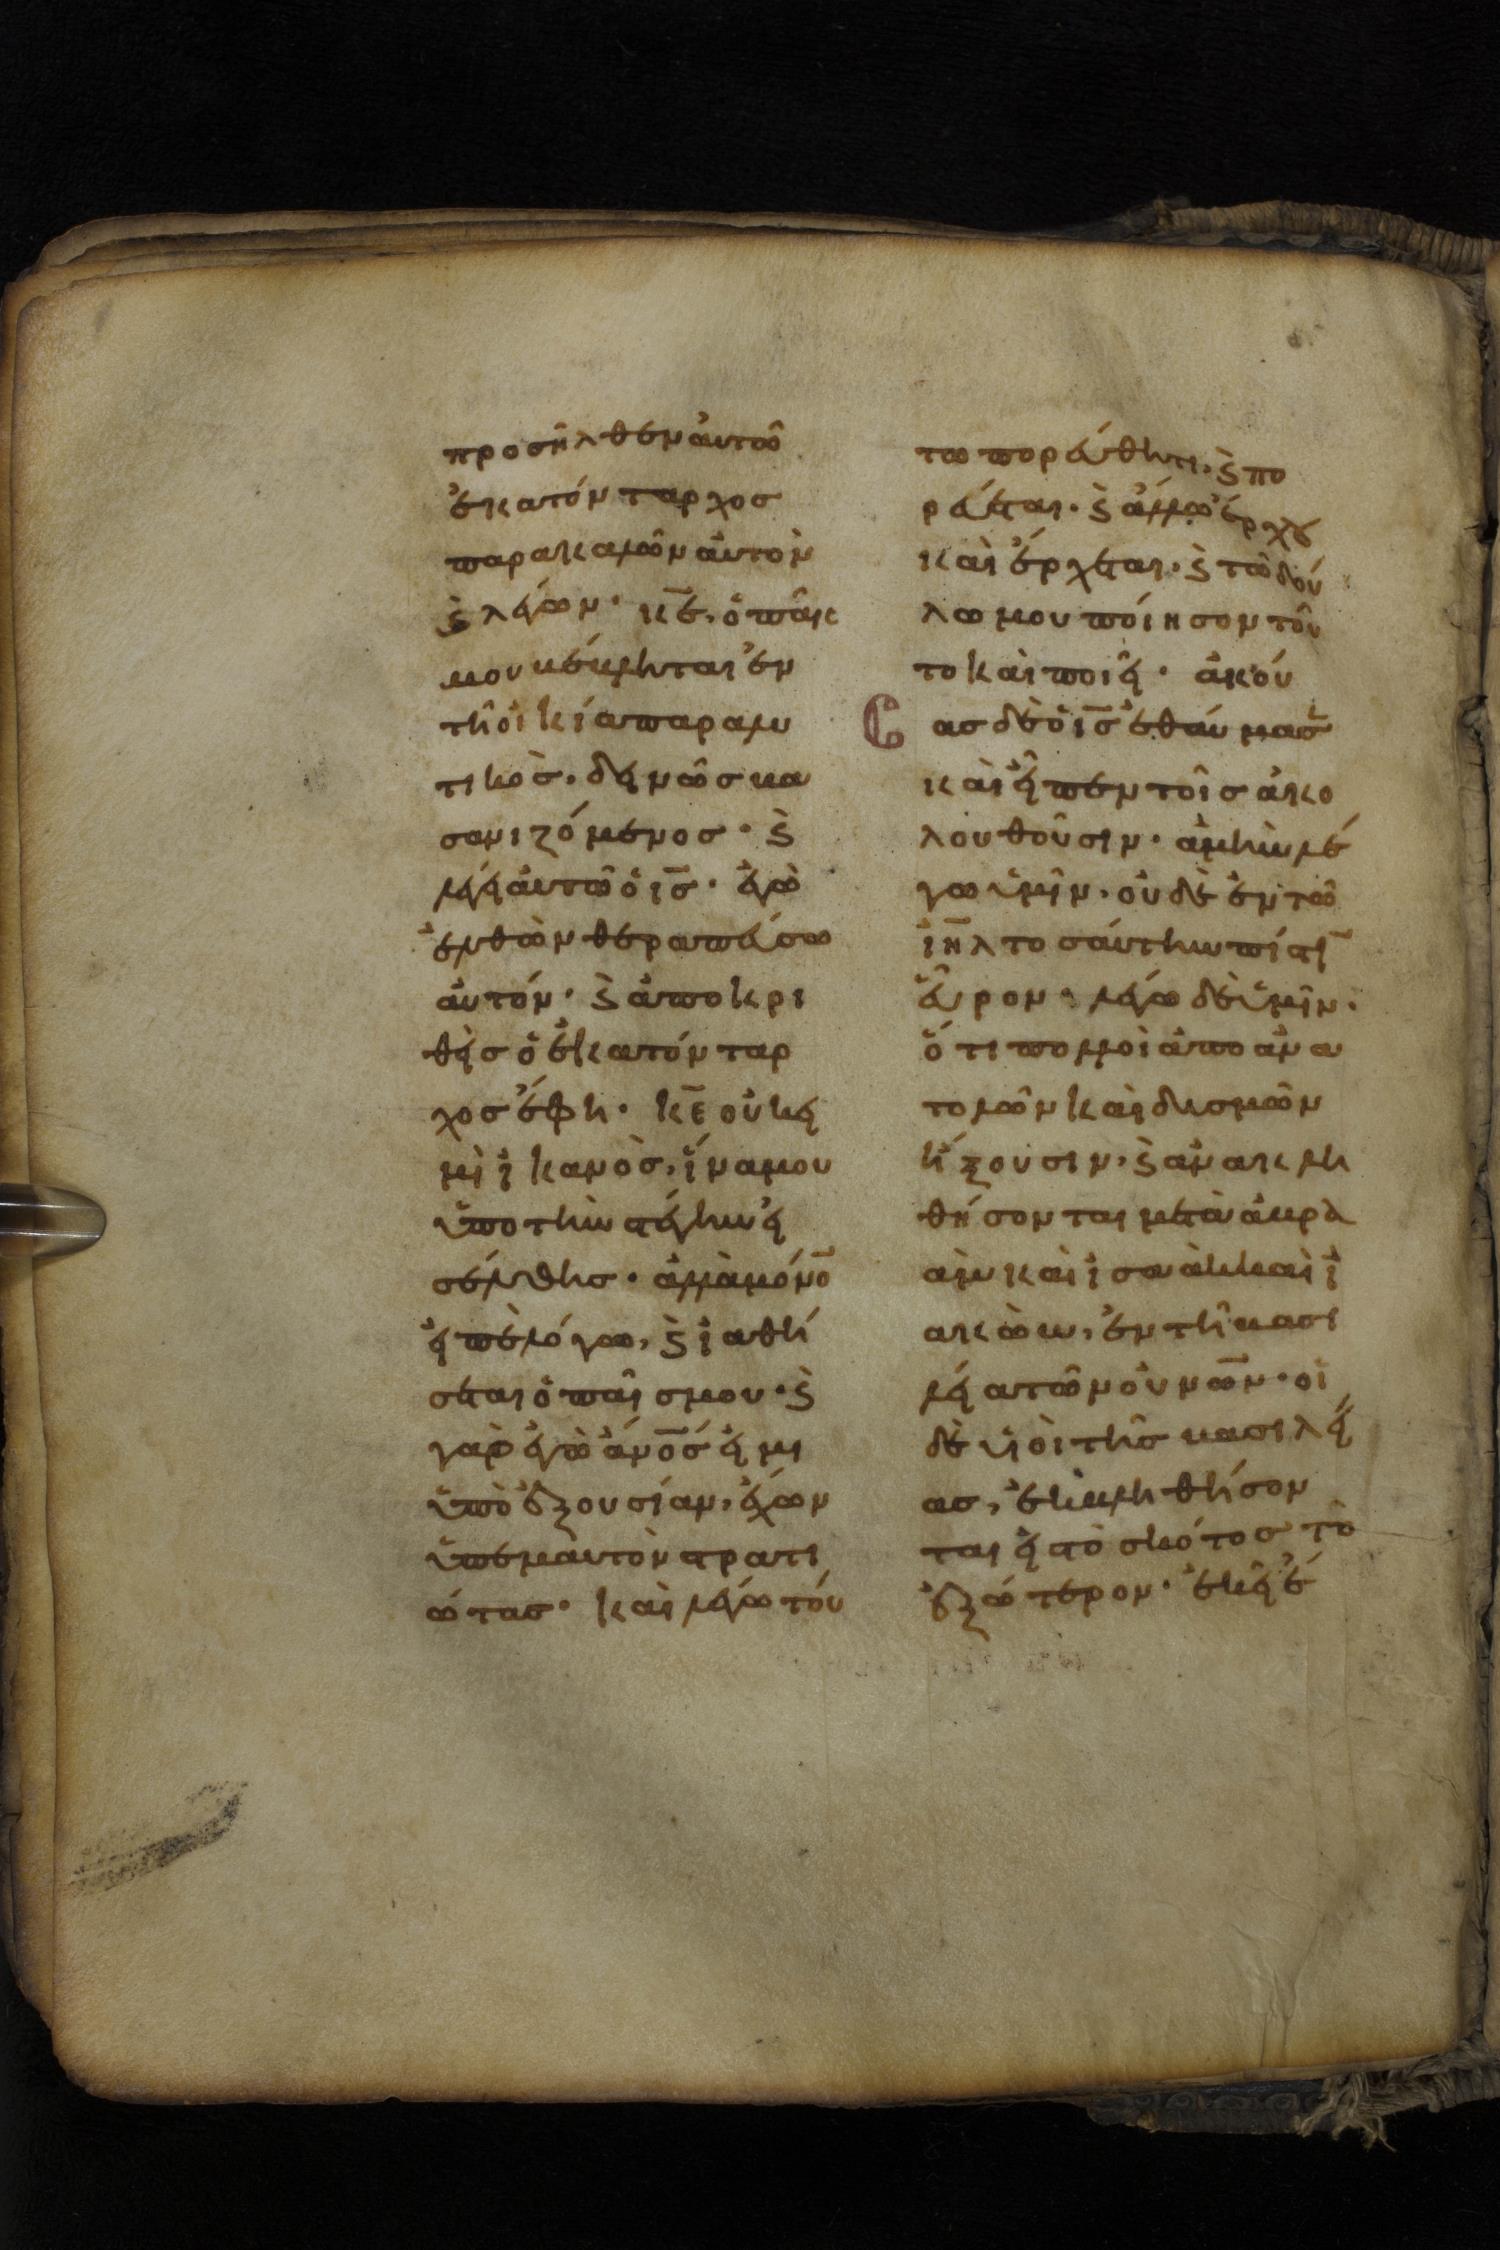 προσῆλθεν ἀυτῶ
ἑκατόνταρχοσ
παρακαλῶν ἀυτὸν
ϗ λέγων· κ̅ε̅, ὁ παῖσ
μου βέβληται ἐν
τῆ ὀικία παραλυ
τικὸσ, δεινῶσ βα
σανιζόμενοσ· ϗ
λέγει ἀυτῶ ὁ ι̅σ̅· ἐγὼ
ἐλθὼν θεραπεύσω
ἀυτόν· ϗ ἀποκρι
θεὶσ ὁ ἑκατόνταρ
χοσ ἔφη· κ̅ε̅ οὐκ εἰ
μὶ ἱκανὸσ, ἵνα μου
ὑπο τὴν στέγην εἰ
σέλθησ· ἀλλὰ μόνο̅
εἰπὲ λόγω, ϗ ἰαθή
σεται ὁ παῖσ μου· ϗ
γαρ ἐγὼ ἄν̅ο̅σ̅ εἰμι
ὑπὸ ἐξουσίαν, ἔχων
ὑπ ἐμαυτὸν στρατι
ώτασ· καὶ λέγω τού
τω πορεύθητι, ϗ πο
ρεύεται· ϗ ἄλλω ἔρχου
καὶ ἔρχεται· ϗ τῶ δού
λω μου ποίησον τοῦ
το καὶ ποιεῖ· ἀκού
σασ δὲ ὁ ι̅σ̅ ἐθαύμασε̅
καὶ εἶπεν τοῖσ ἀκο
λουθοῦσιν· ἀμὴν λέ
γω ὑμῖν, οὐδὲ ἐν τῶ
ἰ̅η̅λ̅ τοσαύτην πίστι̅
εὗρον· λέγω δὲ ὑμῖν·
ὅτι πολλοὶ ἀπο ἀνα
τολῶν καὶ δυσμῶν
ἥξουσιν, ϗ ἀνακλη
θήσονται μετὰ ἀβρα
ὰμ καὶ ἰσαὰκ καὶ ἰ
ακὼβ, ἐν τῆ βασι
λεία τῶν οὐνῶ̅ν· οἱ
δὲ υἱοὶ τῆσ βασιλεί
ασ, ἐκβληθήσον
ται εἰσ τὸ σκότοσ τὸ
ἐξώτερον· ἐκεῖ ἔ